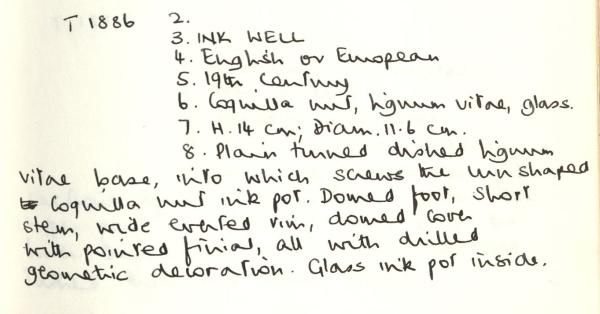 T 1886 2.
3. INK WELL
4. English or European
5. 19th Century
6. Coquilla nut, lignum vitae, glass.
7. H. 14 cm; Diam. 11.6 cm.
8. Plain turned dished lignum
vitae base, into which screws the urn shaped
Coquilla nut ink pot. Domed foot, short
stem, wide everted rim, domed cover
with pointed finial, all with drilled
geometric decoration. Glass ink pot inside.